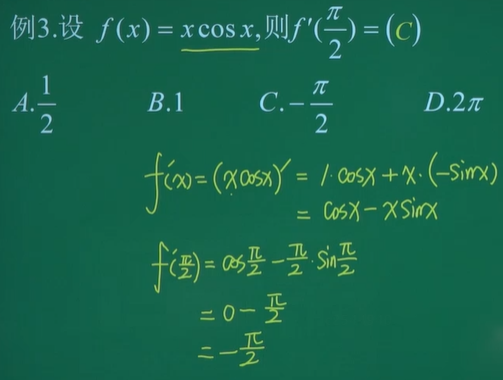 例3.设 f(x) = x cos x,则f'(π/2) = (C)
A.1/2 B.1 C.-π/2 D.2π
f'(x) = (xcosx)' = 1·cosx + x·(-sinx)
= cosx - xsinx
f'(π/2) = cosπ/2 - π/2·sinπ/2
= 0 - π/2
= -π/2